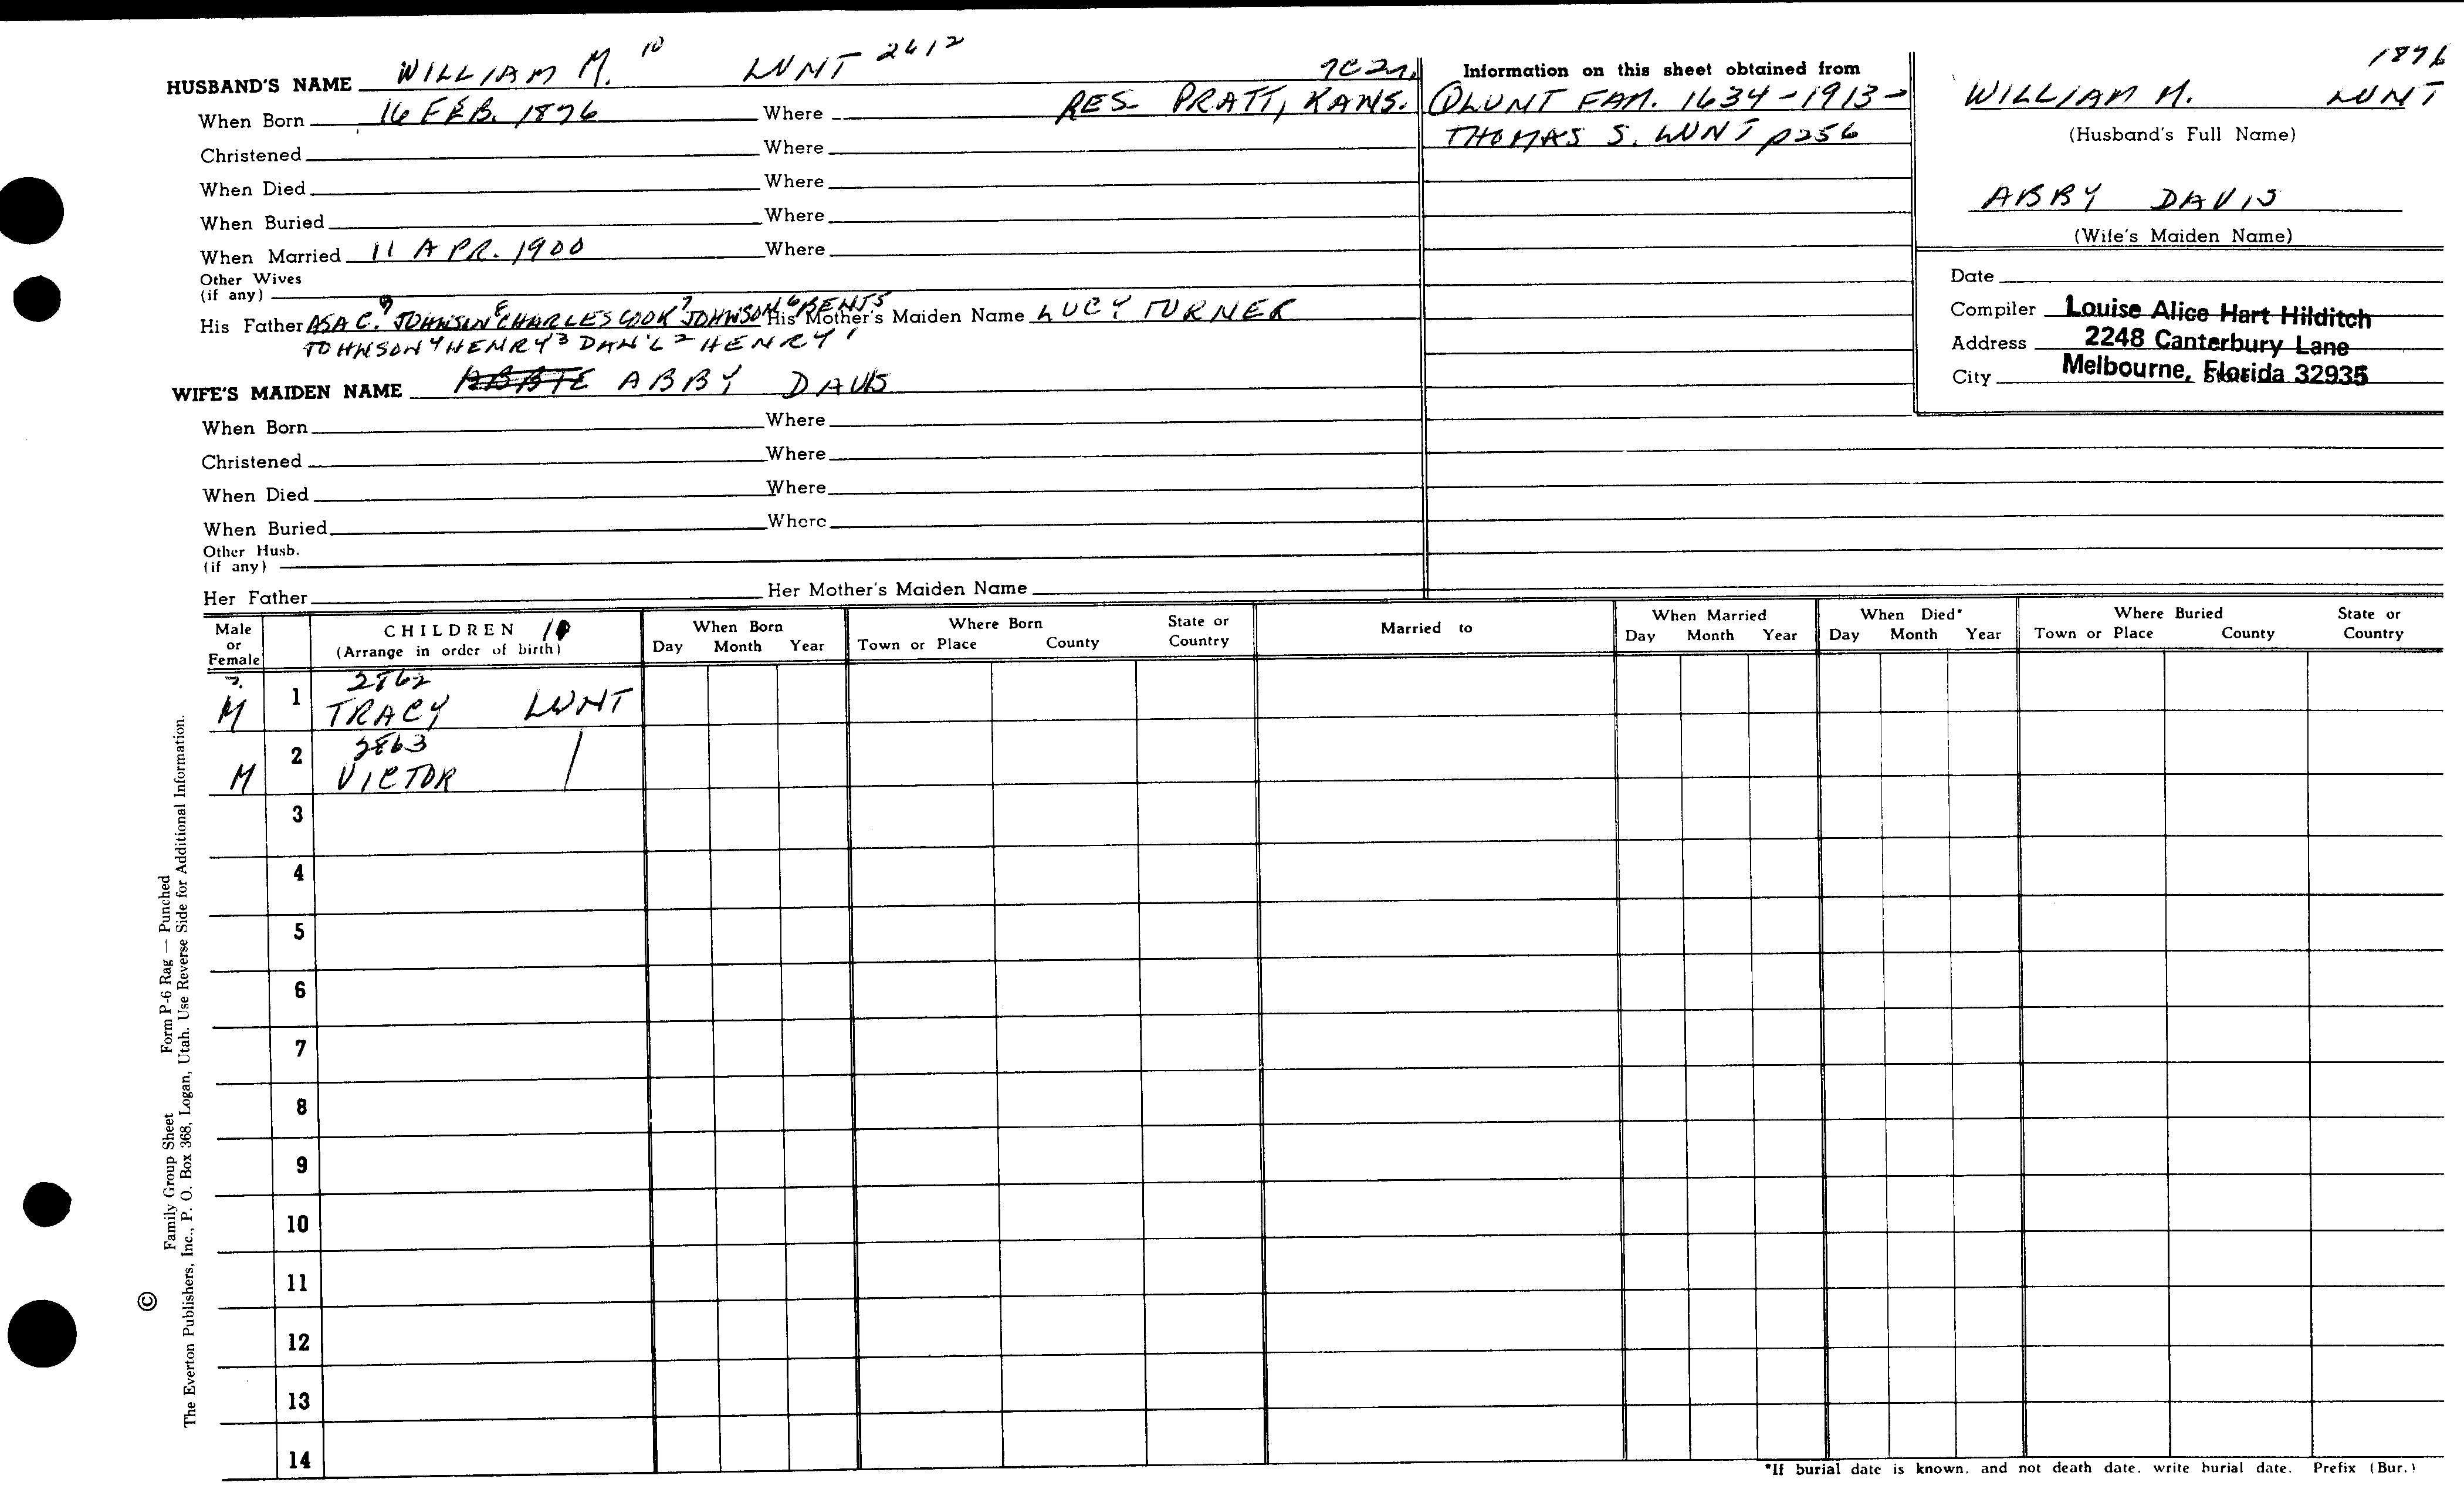 HUSBAND'S NAME WILLIAM M. 10 LUNT 2612
When Born 16 FEB. 1876 Where RES. PRATT, KANS.
Christened Where
When Died Where
When Buried Where
When Married 11 APR. 1900 Where
Other Wives
(if any)
His Father ASA C.9 JOHNSON8 CHARLES COOK7 JOHNSON6 BENJ5 His Mother's Maiden Name LUCY TURNER
JOHNSON4 HENRY3 DAN'L2 HENRY1
WIFE'S MAIDEN NAME ABBIE ABBY DAVIS
When Born Where
Christened Where
When Died Where
When Buried Where
Other Husb.
(if any)
Her Father Her Mother's Maiden Name
Information on this sheet obtained from
LUNT FAM. 1634-1913-
THOMAS S. LUNT p256
1876
WILLIAM M. LUNT
(Husband's Full Name)
ABBY DAVIS
(Wife's Maiden Name)
Date
Compiler Louise Alice Hart Hilditch
Address 2248 Canterbury Lane
City Melbourne, Florida 32935
State
Male or Female CHILDREN 10 (Arrange in order of birth) When Born Day Month Year Where Born Town or Place County State or Country Married to When Married Day Month Year When Died* Day Month Year Where Buried Town or Place County State or Country
2862
M 1 TRACY LUNT
2863
M 2 VICTOR
3
4
5
6
7
8
9
10
11
12
13
14
*If burial date is known, and not death date, write burial date. Prefix (Bur.)
© Family Group Sheet Form P-6 Rag — Punched
The Everton Publishers, Inc., P. O. Box 368, Logan, Utah. Use Reverse Side for Additional Information.